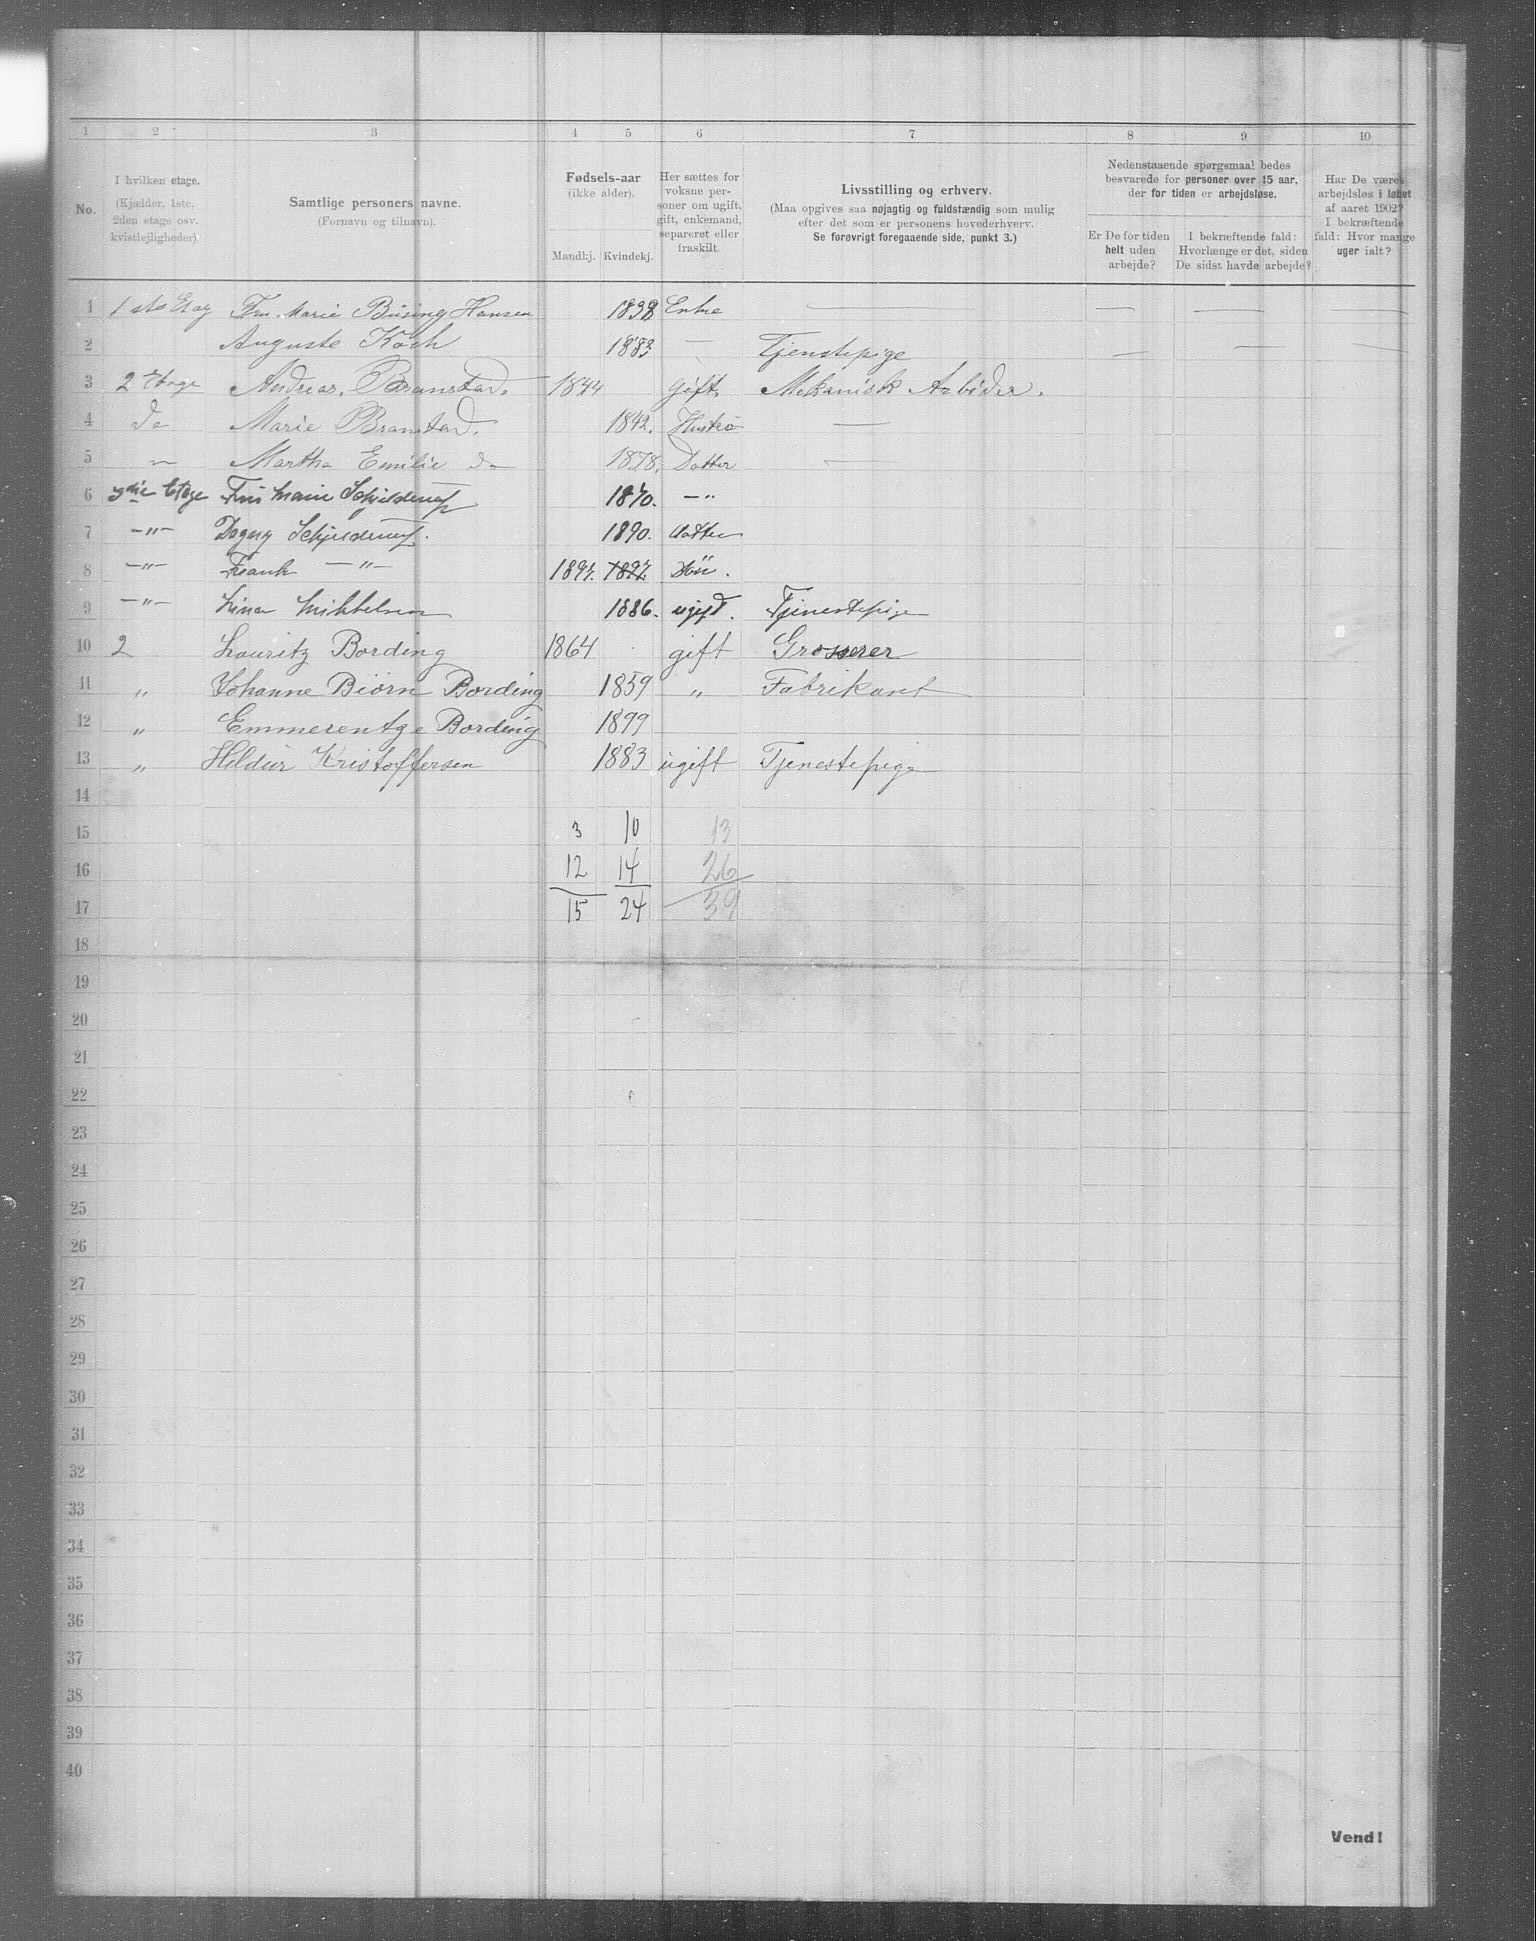 1 2 3 4 5 6 7 8 9 10
No.
I hvilken etage.
(Kjælder, 1ste,
2den etage osv.
kvistlejligheder).
Samtlige personers navne.
(Fornavn og tilnavn).
Fødsels-aar
(ikke alder).
Mandkj. Kvindekj.
Her sættes for
voksne per-
soner om ugift,
gift, enkemand,
separeret eller
fraskilt.
Livsstilling og erhverv.
(Maa opgives saa nøjagtig og fuldstændig som mulig
efter det som er personens hovederhverv.
Se forøvrigt foregaaende side, punkt 3.)
Nedenstaaende spørgsmaal bedes
besvarede for personer over 15 aar,
der for tiden er arbejdsløse.
Er De for tiden
helt uden
arbejde?
I bekræftende fald:
Hvorlænge er det, siden
De sidst havde arbejde?
Har De været
arbejdsløs i løbet
af aaret 1902?
I bekræftende
fald: Hvor mange
uger ialt?
1 1ste Etag Fru Marie Büsing Hansen 1838 Enke — — — —
2 Auguste Koch 1883 — Tjenstepige — — —
3 2 Etage Andreas. Branstad. 1844 gift. Mekanisk Arbeider.
4 do Marie Branstad. 1842. Hustru —
5 " Martha Emilie do 1878. Datter —
6 3die Etage Fru Marie Schjelderup 1870. –"
7 –"– Dagny Schjelderup. 1890. datter
8 –"– Frank –"– 1897. 1897. Søn.
9 –"– Lina Mikkelsen 1886. ugift. Tjenestepige
10 2 Lauritz Bording 1864 gift Grosserer
11 " Johanne Biørn Bording 1859 " Fabrikant
12 " Emmerentze Bording 1899
13 " Hildur Kristoffersen 1883 ugift Tjenestepige
14
15 3 10 13
16 12 14 26
17 15 24 39
18
19
20
21
22
23
24
25
26
27
28
29
30
31
32
33
34
35
36
37
38
39
40
Vend!